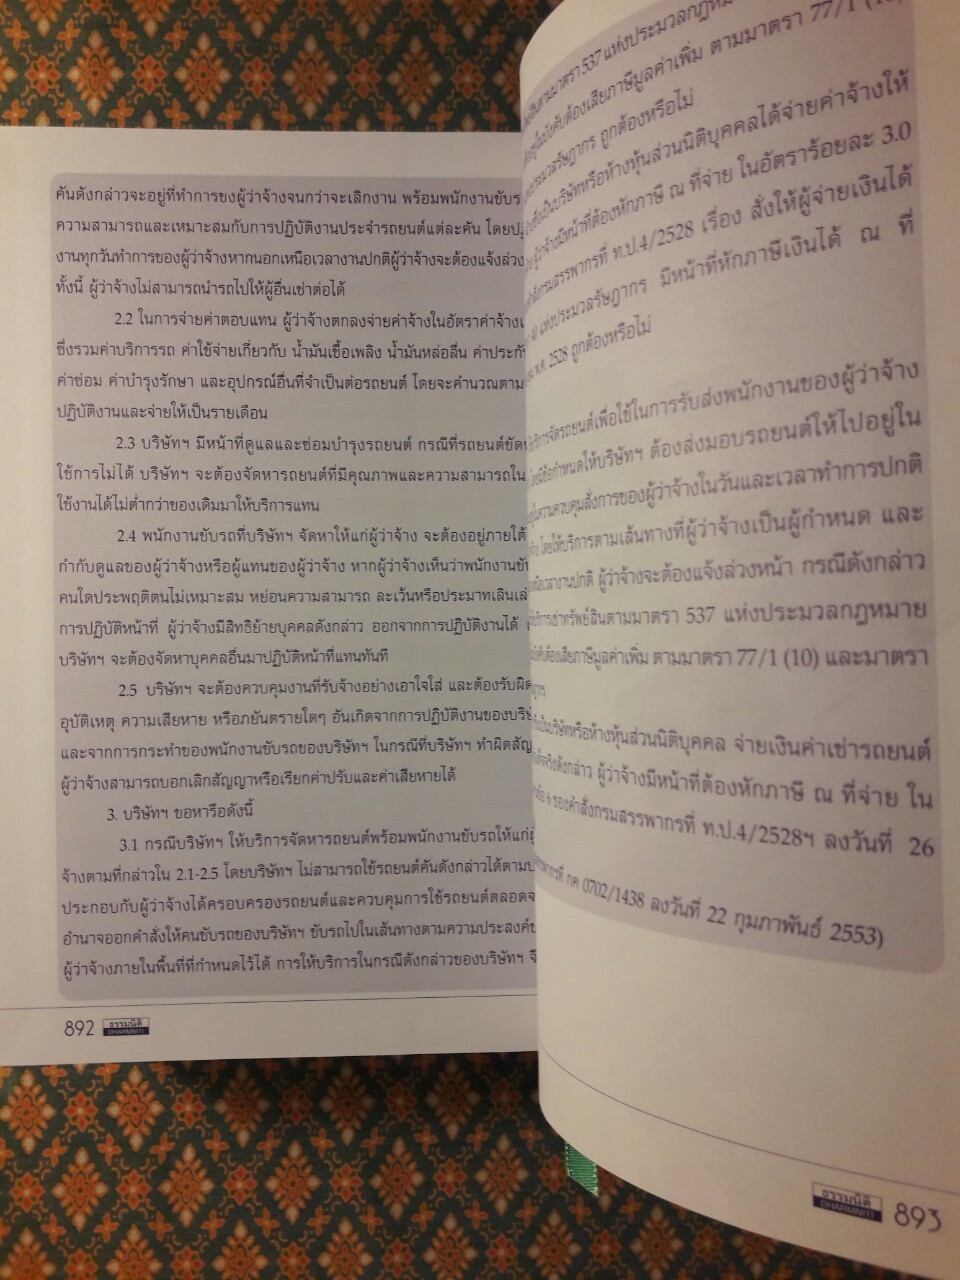 คันดังกล่าวจะอยู่ที่ทำการของผู้ว่าจ้างจนกว่าจะเลิกงาน พร้อมพนักงานขับร
ความสามารถและเหมาะสมกับการปฏิบัติงานประจำรถยนต์แต่ละคัน
งานทุกวันทำการของผู้ว่าจ้างหากนอกเหนือเวลางานปกติผู้ว่าจ้างจะต้องแจ้งล่วง
ทั้งนี้ ผู้ว่าจ้างไม่สามารถนำรถไปให้ผู้อื่นเช่าต่อได้
2.2 ในการจ่ายค่าตอบแทน ผู้ว่าจ้างตกลงจ่ายค่าจ้างในอัตราค่าจ้าง
ซึ่งรวมค่าบริการรถ ค่าใช้จ่ายเกี่ยวกับ น้ำมันเชื้อเพลิง น้ำมันหล่อลื่น ค่าประกั
ค่าซ่อม ค่าบำรุงรักษา และอุปกรณ์อื่นที่จำเป็นต่อรถยนต์ โดยจะคำนวณตาม
ปฏิบัติงานและจ่ายให้เป็นรายเดือน
2.3 บริษัทฯ มีหน้าที่ดูแลและซ่อมบำรุงรถยนต์ กรณีที่รถยนต์ขัด
ใช้การไม่ได้ บริษัทฯ จะต้องจัดหารถยนต์ที่มีคุณภาพและความสามารถใน
ใช้งานได้ไม่ต่ำกว่าของเดิมมาให้บริการแทน
2.4 พนักงานขับรถที่บริษัทฯ จัดหาให้แก่ผู้ว่าจ้าง จะต้องอยู่ภายใต้
กำกับดูแลของผู้ว่าจ้างหรือผู้แทนของผู้ว่าจ้าง หากผู้ว่าจ้างเห็นว่าพนักงานขับ
คนใดประพฤติตนไม่เหมาะสม หย่อนความสามารถ ละเว้นหรือประมาทเลินเล่
การปฏิบัติหน้าที่ ผู้ว่าจ้างมีสิทธิย้ายบุคคลดังกล่าว ออกจากการปฏิบัติงานได้
บริษัทฯ จะต้องจัดหาบุคคลอื่นมาปฏิบัติหน้าที่แทนทันที
2.5 บริษัทฯ จะต้องควบคุมงานที่รับจ้างอย่างเอาใจใส่ และต้องรับผิด
อุบัติเหตุ ความเสียหาย หรือภยันตรายใดๆ อันเกิดจากการปฏิบัติงานของบริษั
และจากการกระทำของพนักงานขับรถของบริษัทฯ ในกรณีที่บริษัทฯ ทำผิดสัญ
ผู้ว่าจ้างสามารถบอกเลิกสัญญาหรือเรียกค่าปรับและค่าเสียหายได้
3. บริษัทฯ ขอหารือดังนี้
3.1 กรณีบริษัทฯ ให้บริการจัดหารถยนต์พร้อมพนักงานขับรถให้แก่ผู้
จ้างตามที่กล่าวใน 2.1-2.5 โดยบริษัทฯ ไม่สามารถใช้รถยนต์คันดังกล่าวได้ตาม
ประกอบกับผู้ว่าจ้างได้ครอบครองรถยนต์และควบคุมการใช้รถยนต์ตลอด
อำนาจออกคำสั่งให้คนขับรถของบริษัทฯ ขับรถไปในเส้นทางตามความประสงค์
ผู้ว่าจ้างภายในพื้นที่ที่กำหนดไว้ได้ การให้บริการในกรณีดังกล่าวของบริษัทฯ
892 ธรรมนิติ
DHARMNITI
ตามมาตรา 537 แห่งประมวลกฎหมา
ในบังคับต้องเสียภาษีมูลค่าเพิ่ม ตามมาตรา 77/1
ประมวลรัษฎากร ถูกต้องหรือไม่
เป็นบริษัทหรือห้างหุ้นส่วนนิติบุคคลได้จ่ายค่าจ้างให้
ผู้ว่าจ้างมีหน้าที่ต้องหักภาษี ณ ที่จ่าย ในอัตราร้อยละ 3.0
กรมสรรพากรที่ ท.ป.4/2528 เรื่อง สั่งให้ผู้จ่ายเงินได้
40 แห่งประมวลรัษฎากร มีหน้าที่หักภาษีเงินได้ ณ ที่
พ.ศ. 2528 ถูกต้องหรือไม่
บริการจัดรถยนต์เพื่อใช้ในการรับส่งพนักงานของผู้ว่าจ้าง
ข้อกำหนดให้บริษัทฯ ต้องส่งมอบรถยนต์ให้ไปอยู่ใน
ความควบคุมสั่งการของผู้ว่าจ้างในวันและเวลาทำการปกติ
โดยให้บริการตามเส้นทางที่ผู้ว่าจ้างเป็นผู้กำหนด และ
เวลางานปกติ ผู้ว่าจ้างจะต้องแจ้งล่วงหน้า กรณีดังกล่าว
บริการเช่าทรัพย์สินตามมาตรา 537 แห่งประมวลกฎหมาย
ต้องเสียภาษีมูลค่าเพิ่ม ตามมาตรา 77/1 (10) และมาตรา
บริษัทหรือห้างหุ้นส่วนนิติบุคคล จ่ายเงินค่าเช่ารถยนต์
ดังกล่าว ผู้ว่าจ้างมีหน้าที่ต้องหักภาษี ณ ที่จ่าย ใน
6 ของคำสั่งกรมสรรพากรที่ ท.ป.4/2528ฯ ลงวันที่ 26
กค 0702/1438 ลงวันที่ 22 กุมภาพันธ์ 2553)
ธรรมนิติ
DHARMNITI 893